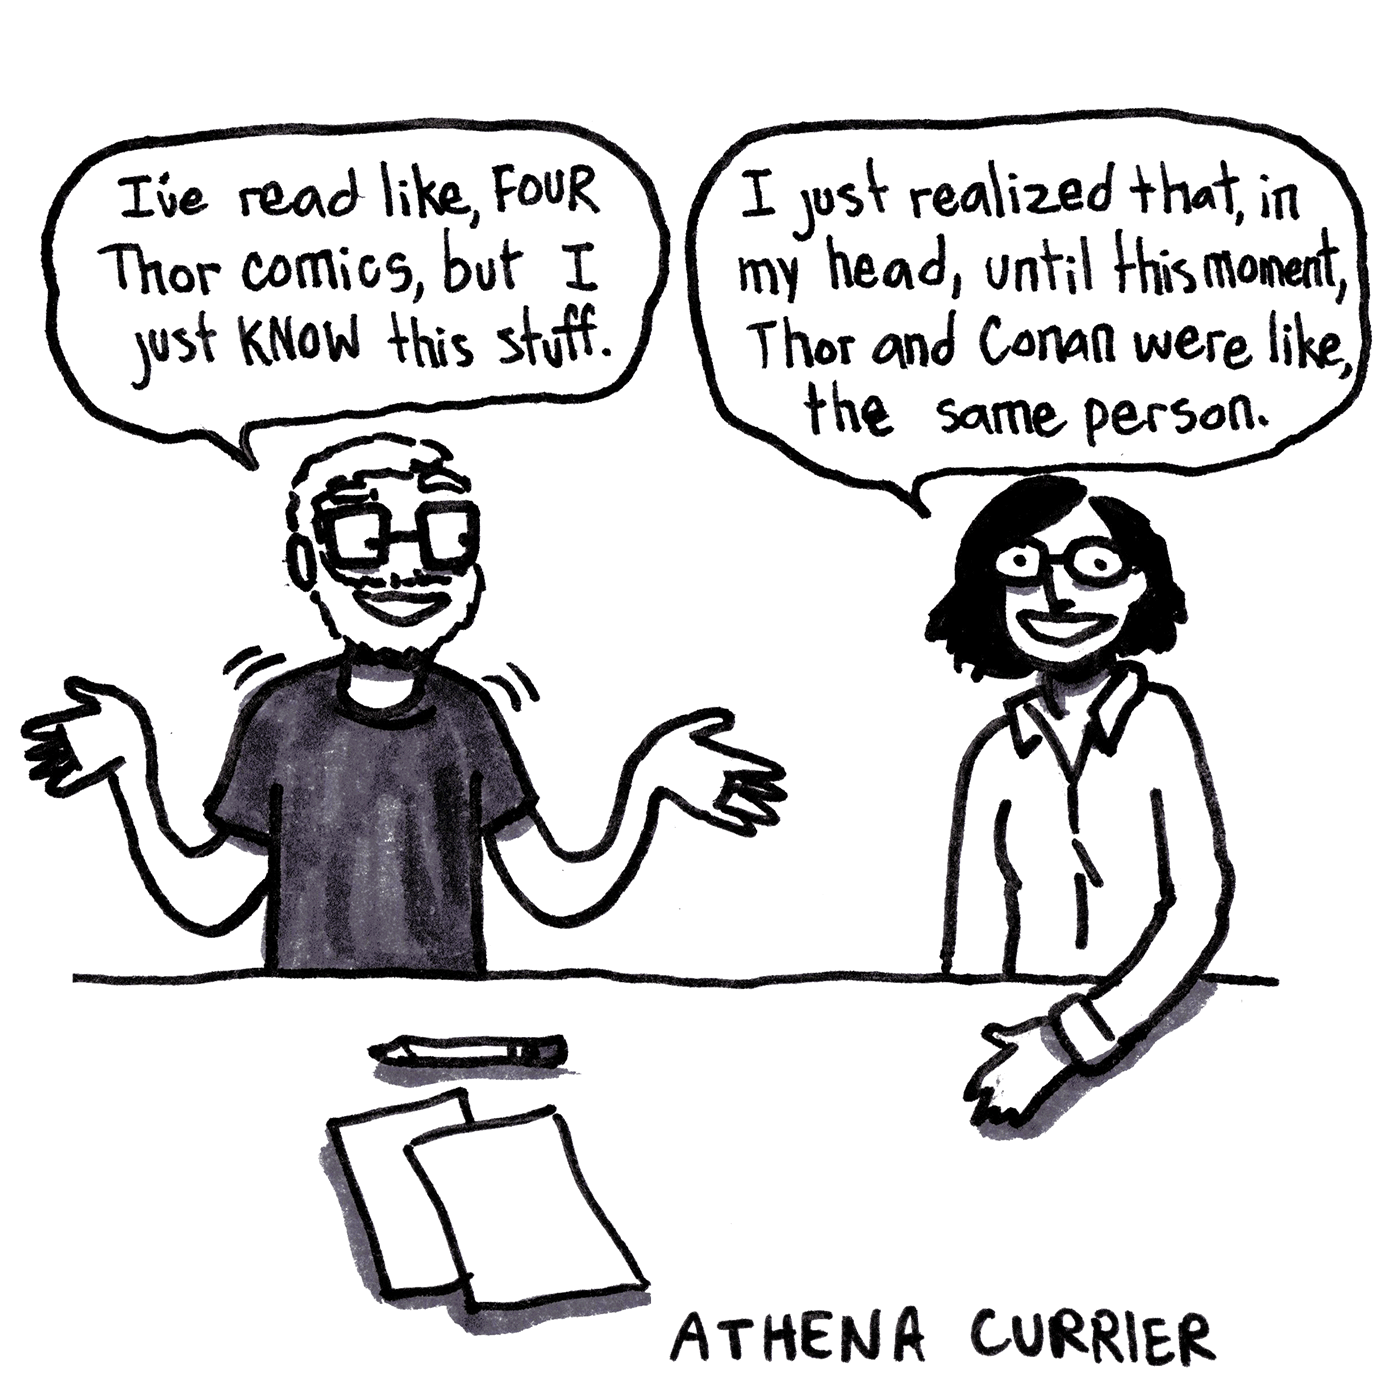 I've read like, FOUR
Thor comics, but I
just KNOW this stuff.
I just realized that, in
my head, until this moment,
Thor and Conan were like,
the same person.
ATHENA CURRIER